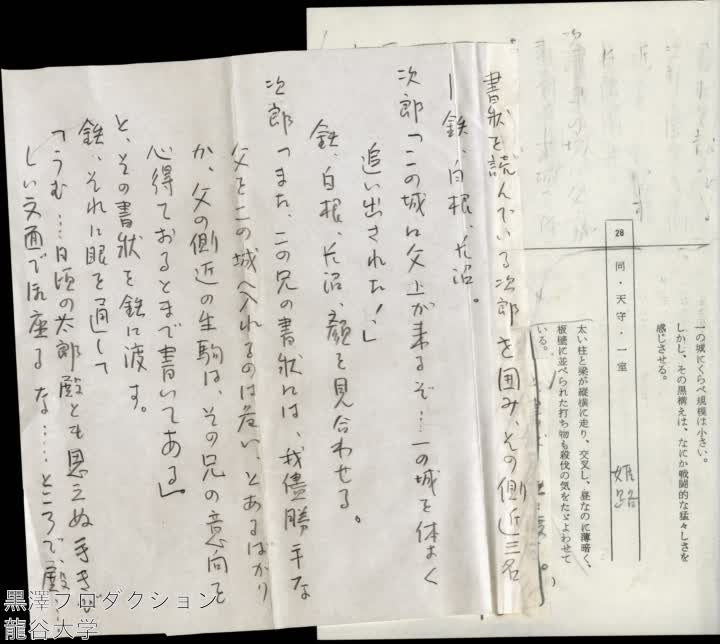 一の城にくらべ規模は小さい。
しかし、その黒構えは、なにか戦闘的な猛々しさを
感じさせる。
28 同・天守・一室
姫路
太い柱と梁が縦横に走り、交叉し、昼なのに薄暗く、
板襖に並べられた打ち物も殺伐の気をたゞよわせて
いる。
書状を読んでいる次郎を囲み、その側近三名
ー鉄、白根、長沼。
次郎「この城に父上が来るぞ…一の城を体よく
追い出された!」
鉄、白根、長沼、顔を見合わせる。
次郎「また、この兄の書状には、我儘勝手な
父をこの城へ入れるのは危い、とあるばかり
か、父の側近の生駒は、その兄の意向を
心得ておるとまで書いてある」
と、その書状を鉄に渡す。
鉄、それに眼を通して
「うむ…日頃の太郎殿とも思えぬ手きび
しい文面で御座るな……ところで、殿…
黒澤プロダクション
龍谷大学